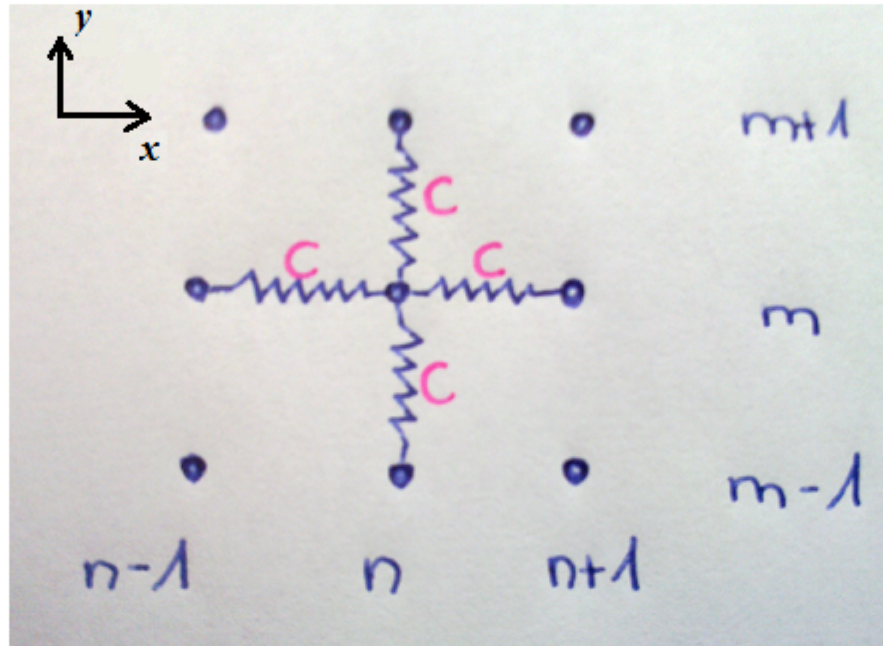 y
x
m+1
C
C C
m
C
m-1
n-1 n n+1